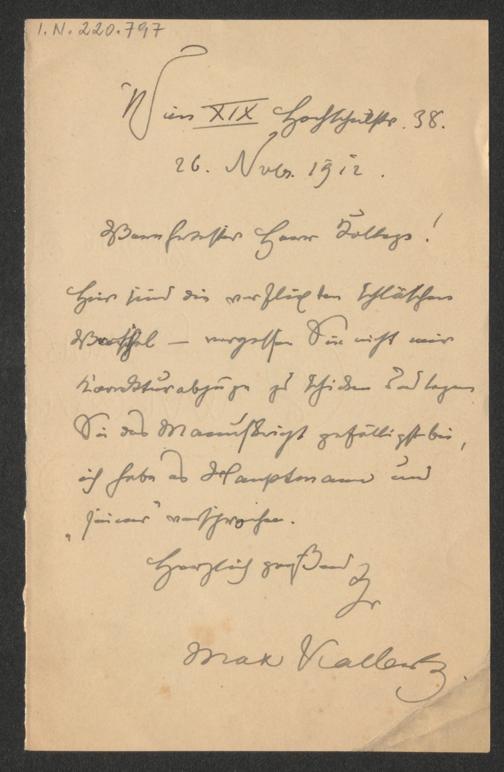 I. N. 220.797
Wien XIX Hochschulstr. 38.
26. Nvbr. 1912.
Verehrtester Herr Kollege!
Hier sind die verflixten Schlesischen
– vergessen Sie nicht mir
Korrekturabzüge zu schicken und legen
Sie das Manuskript gefälligst bei,
ich habe es Hauptmann und
„seiner“ versprochen.
Herzlich grüßend
Ihr
Max Kalbeck.